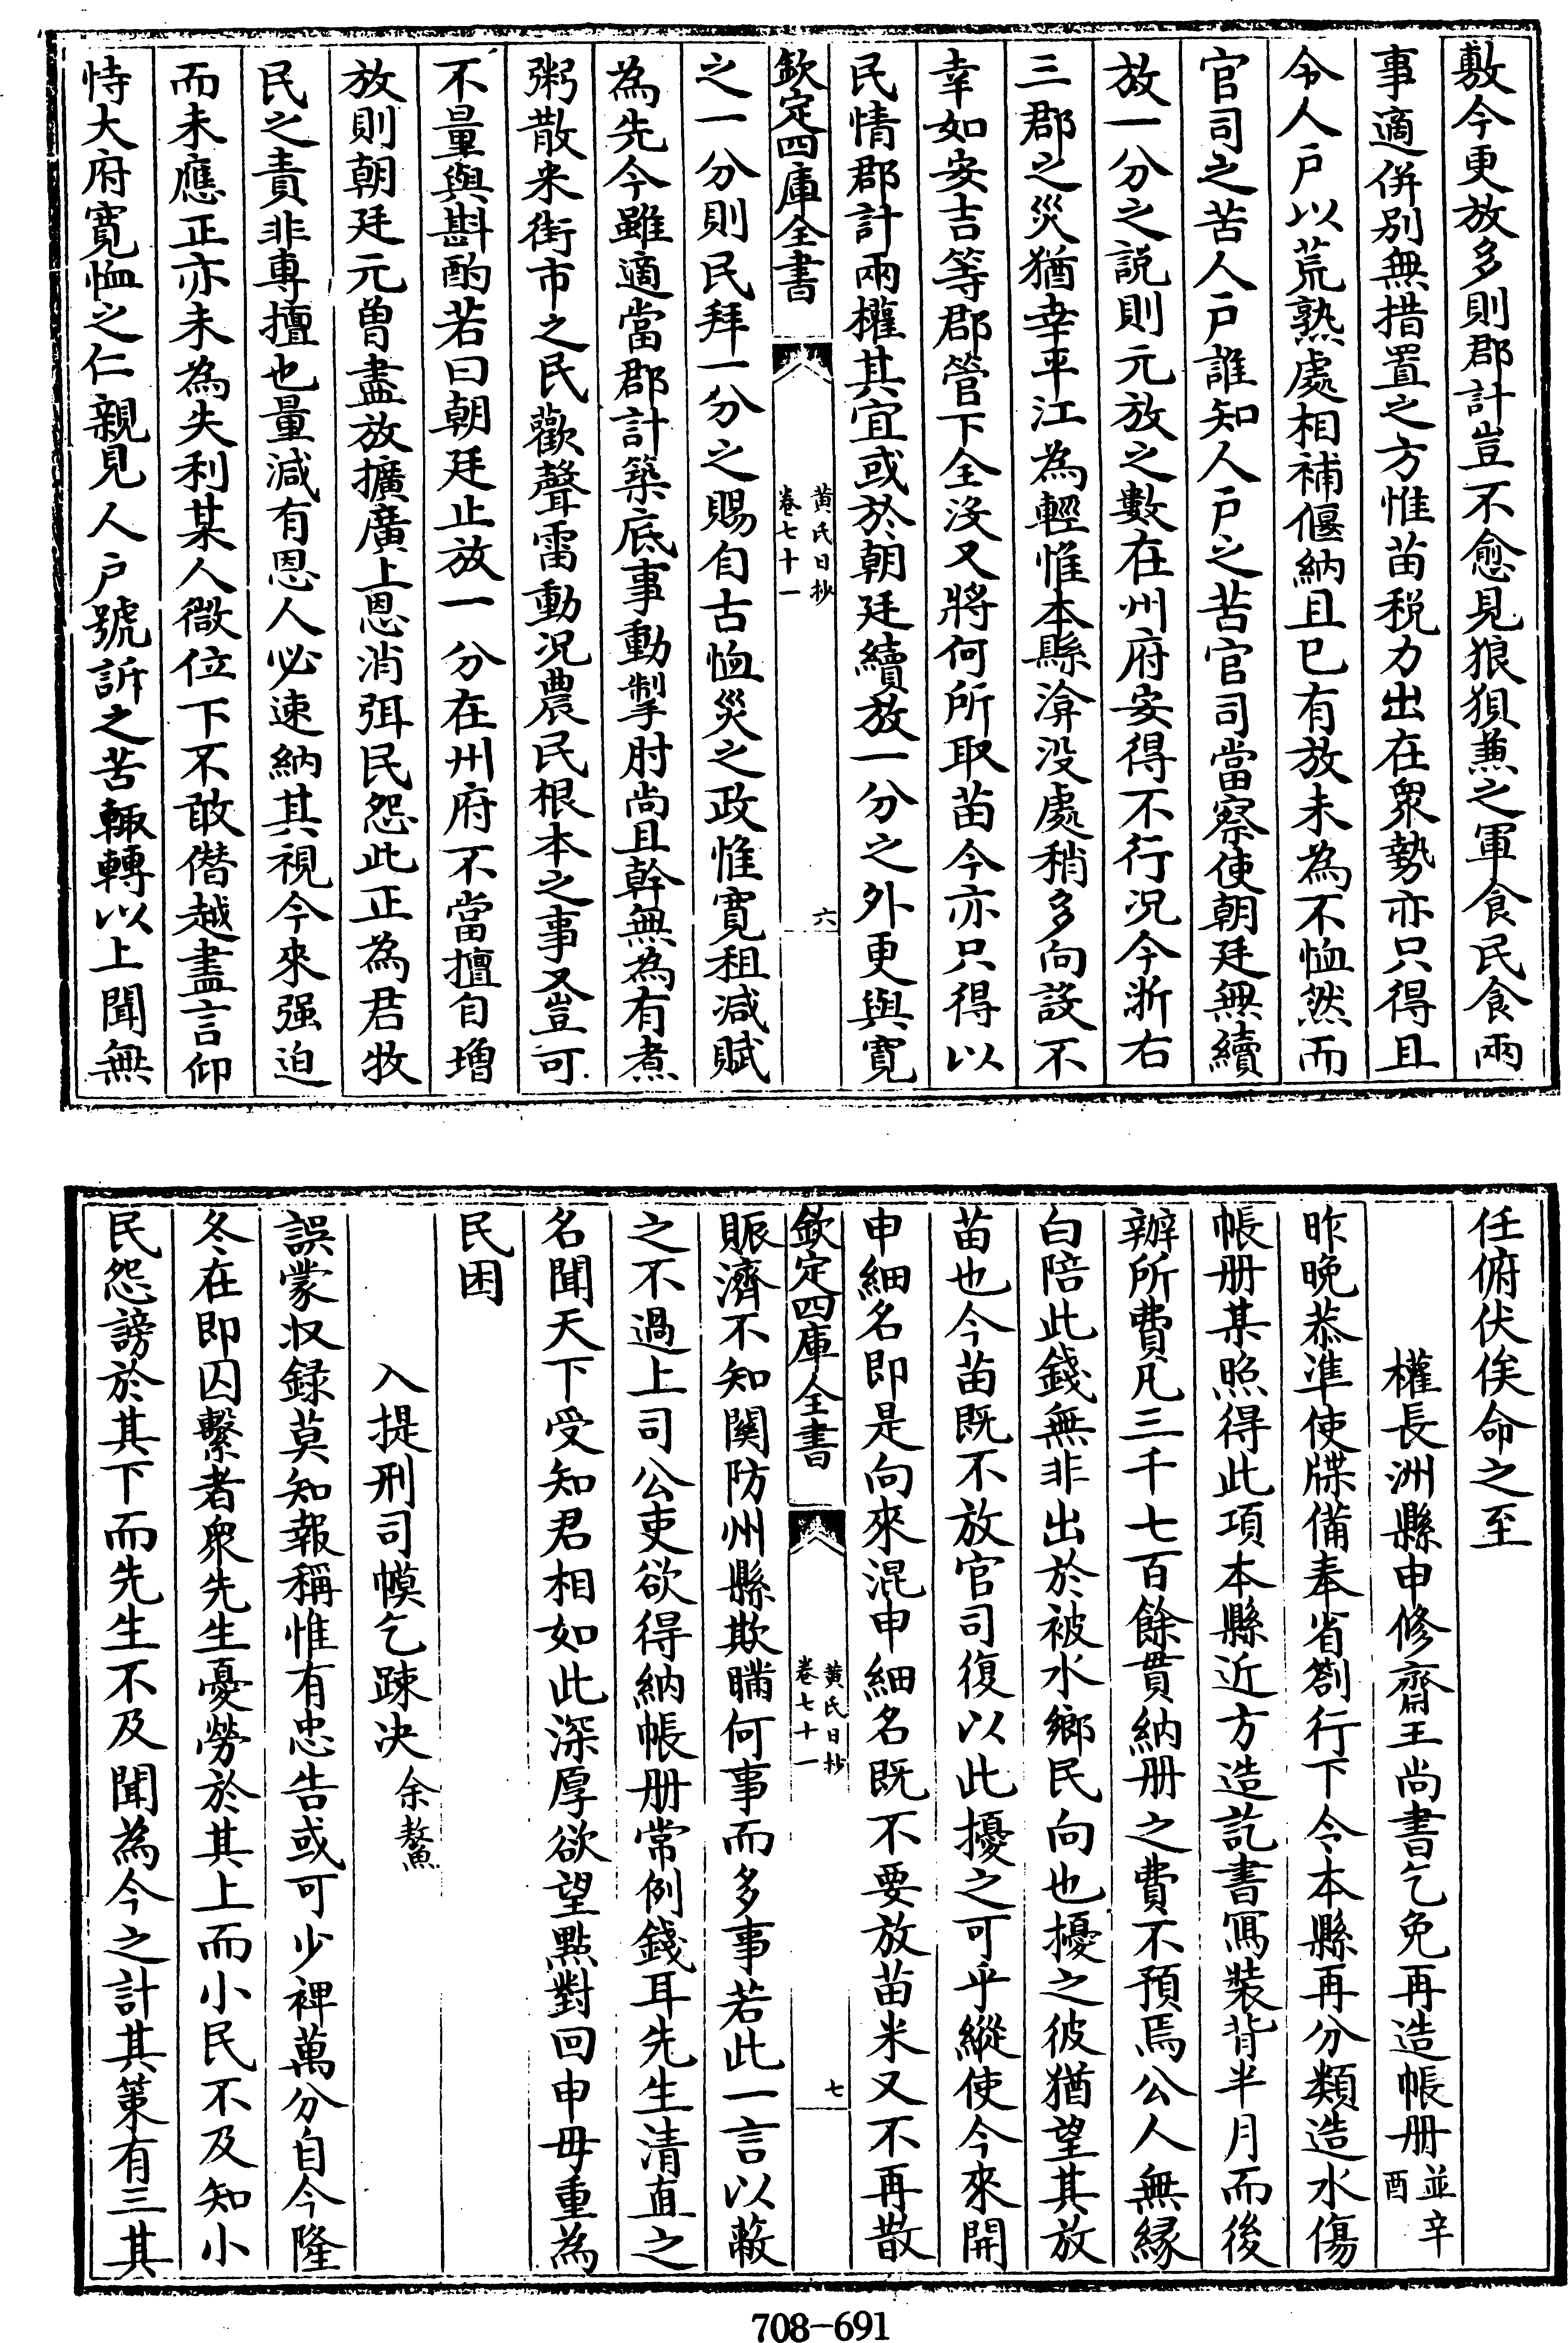 敷今更放多則郡計豈不愈見狼狽蕪之軍食民食兩
事適併别無措置之方惟苗税力出在衆勢亦只得且
令人戸以荒熟處相補偃納且已有放未為不恤然而
官司之苦人戸誰知人戸之苦官司當察使朝廷無續
放一分之説則元放之數在州府安得不行况今浙右
三郡之災猶幸平江為輕惟本縣渰没處稍多向設不
幸如安吉等郡管下全没又將何所取苗今亦只得以
民情郡計兩權其宜或於朝廷續放一分之外更與寛
欽定四庫全書
黄氏日抄
卷七十一
六
之一分則民拜一分之賜自古恤災之政惟寛租减賦
為先今雖適當郡計築底事動掣肘尚且幹無為有煮
粥散米街市之民歡聲雷動况農民根本之事又豈可
不量與斟酌若曰朝廷止放一分在州府不當擅自增
放則朝廷元曽盡放擴廣上恩消弭民怨此正為君牧
民之責非専擅也量減有恩人必速納其視今來强迫
而未應正亦未為失利某人微位下不敢僭越盡言仰
恃大府寛恤之仁親見人戸號訴之苦輙轉以上聞無
任俯伏俟命之至
權長洲縣申修齋王尚書乞免再造帳册並辛酉
昨晚恭凖使牒備奉省劄行下令本縣再分類造水傷
帳册某照得此項本縣近方造訖書寫裝背半月而後
辦所費凡三千七百餘貫納册之費不預焉公人無縁
白陪此錢無非出於被水鄉民向也擾之彼猶望其放
苗也今苗既不放官司復以此擾之可乎縱使今來開
申細名即是向來混申細名既不要放苗米又不再散
欽定四庫全書
黄氏日抄
卷七十一
七
賑濟不知関防州縣欺瞞何事而多事若此一言以蔽
之不過上司公吏欲得納帳册常例錢耳先生清直之
名聞天下受知君相如此深厚欲望點對回申毋重為
民困
入提刑司幙乞踈决余鰲
誤蒙収録莫知報稱惟有忠告或可少裨萬分自今隆
冬在即囚繫者衆先生憂勞於其上而小民不及知小
民怨謗於其下而先生不及聞為今之計其策有三其
708-691